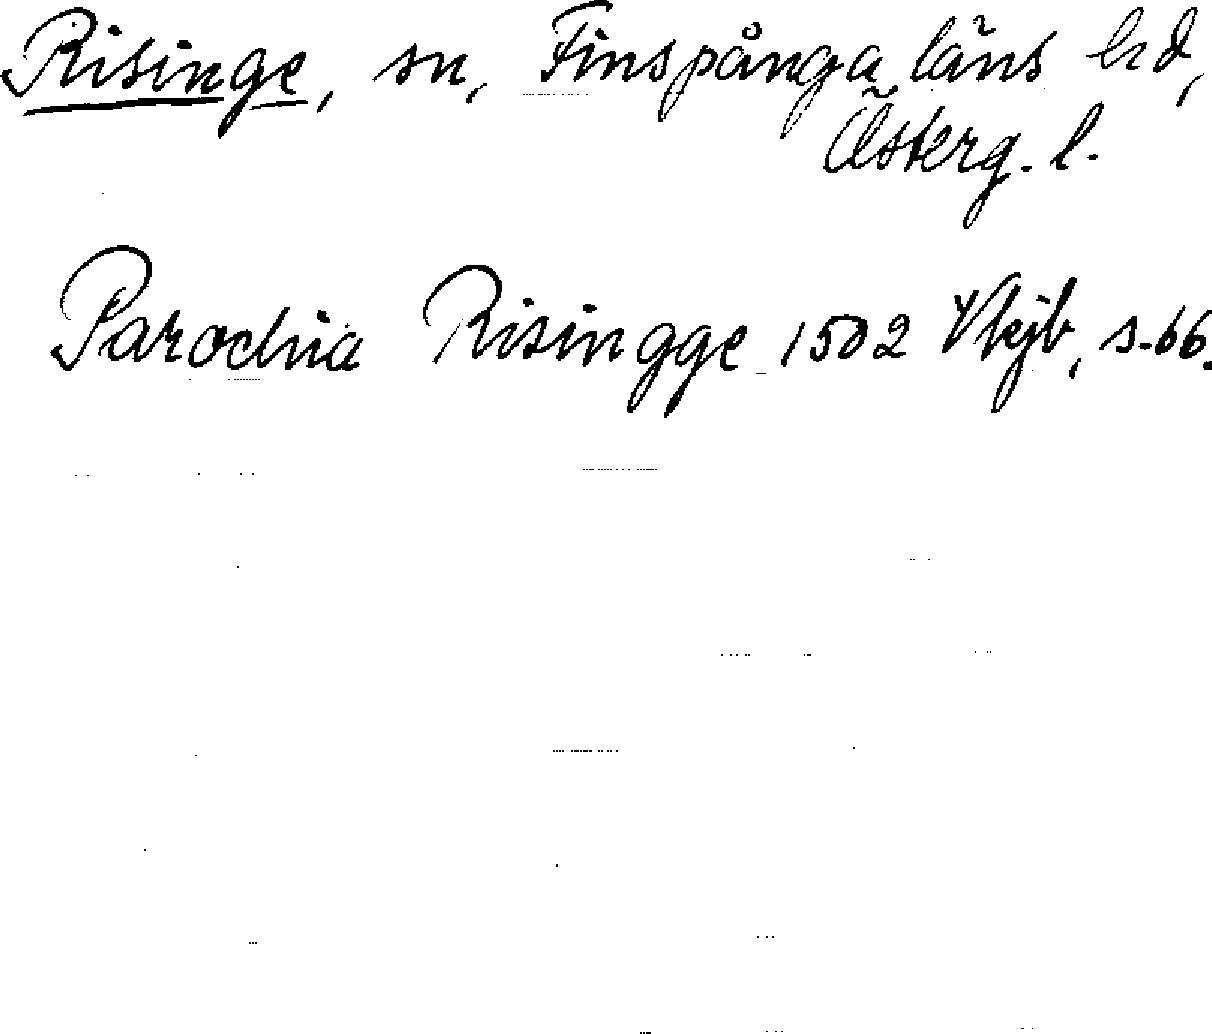 Risinge, sn, Finspånga läns hd,
Österg. l.
Parochia Risingge 1502 Vkjb, s. 66.